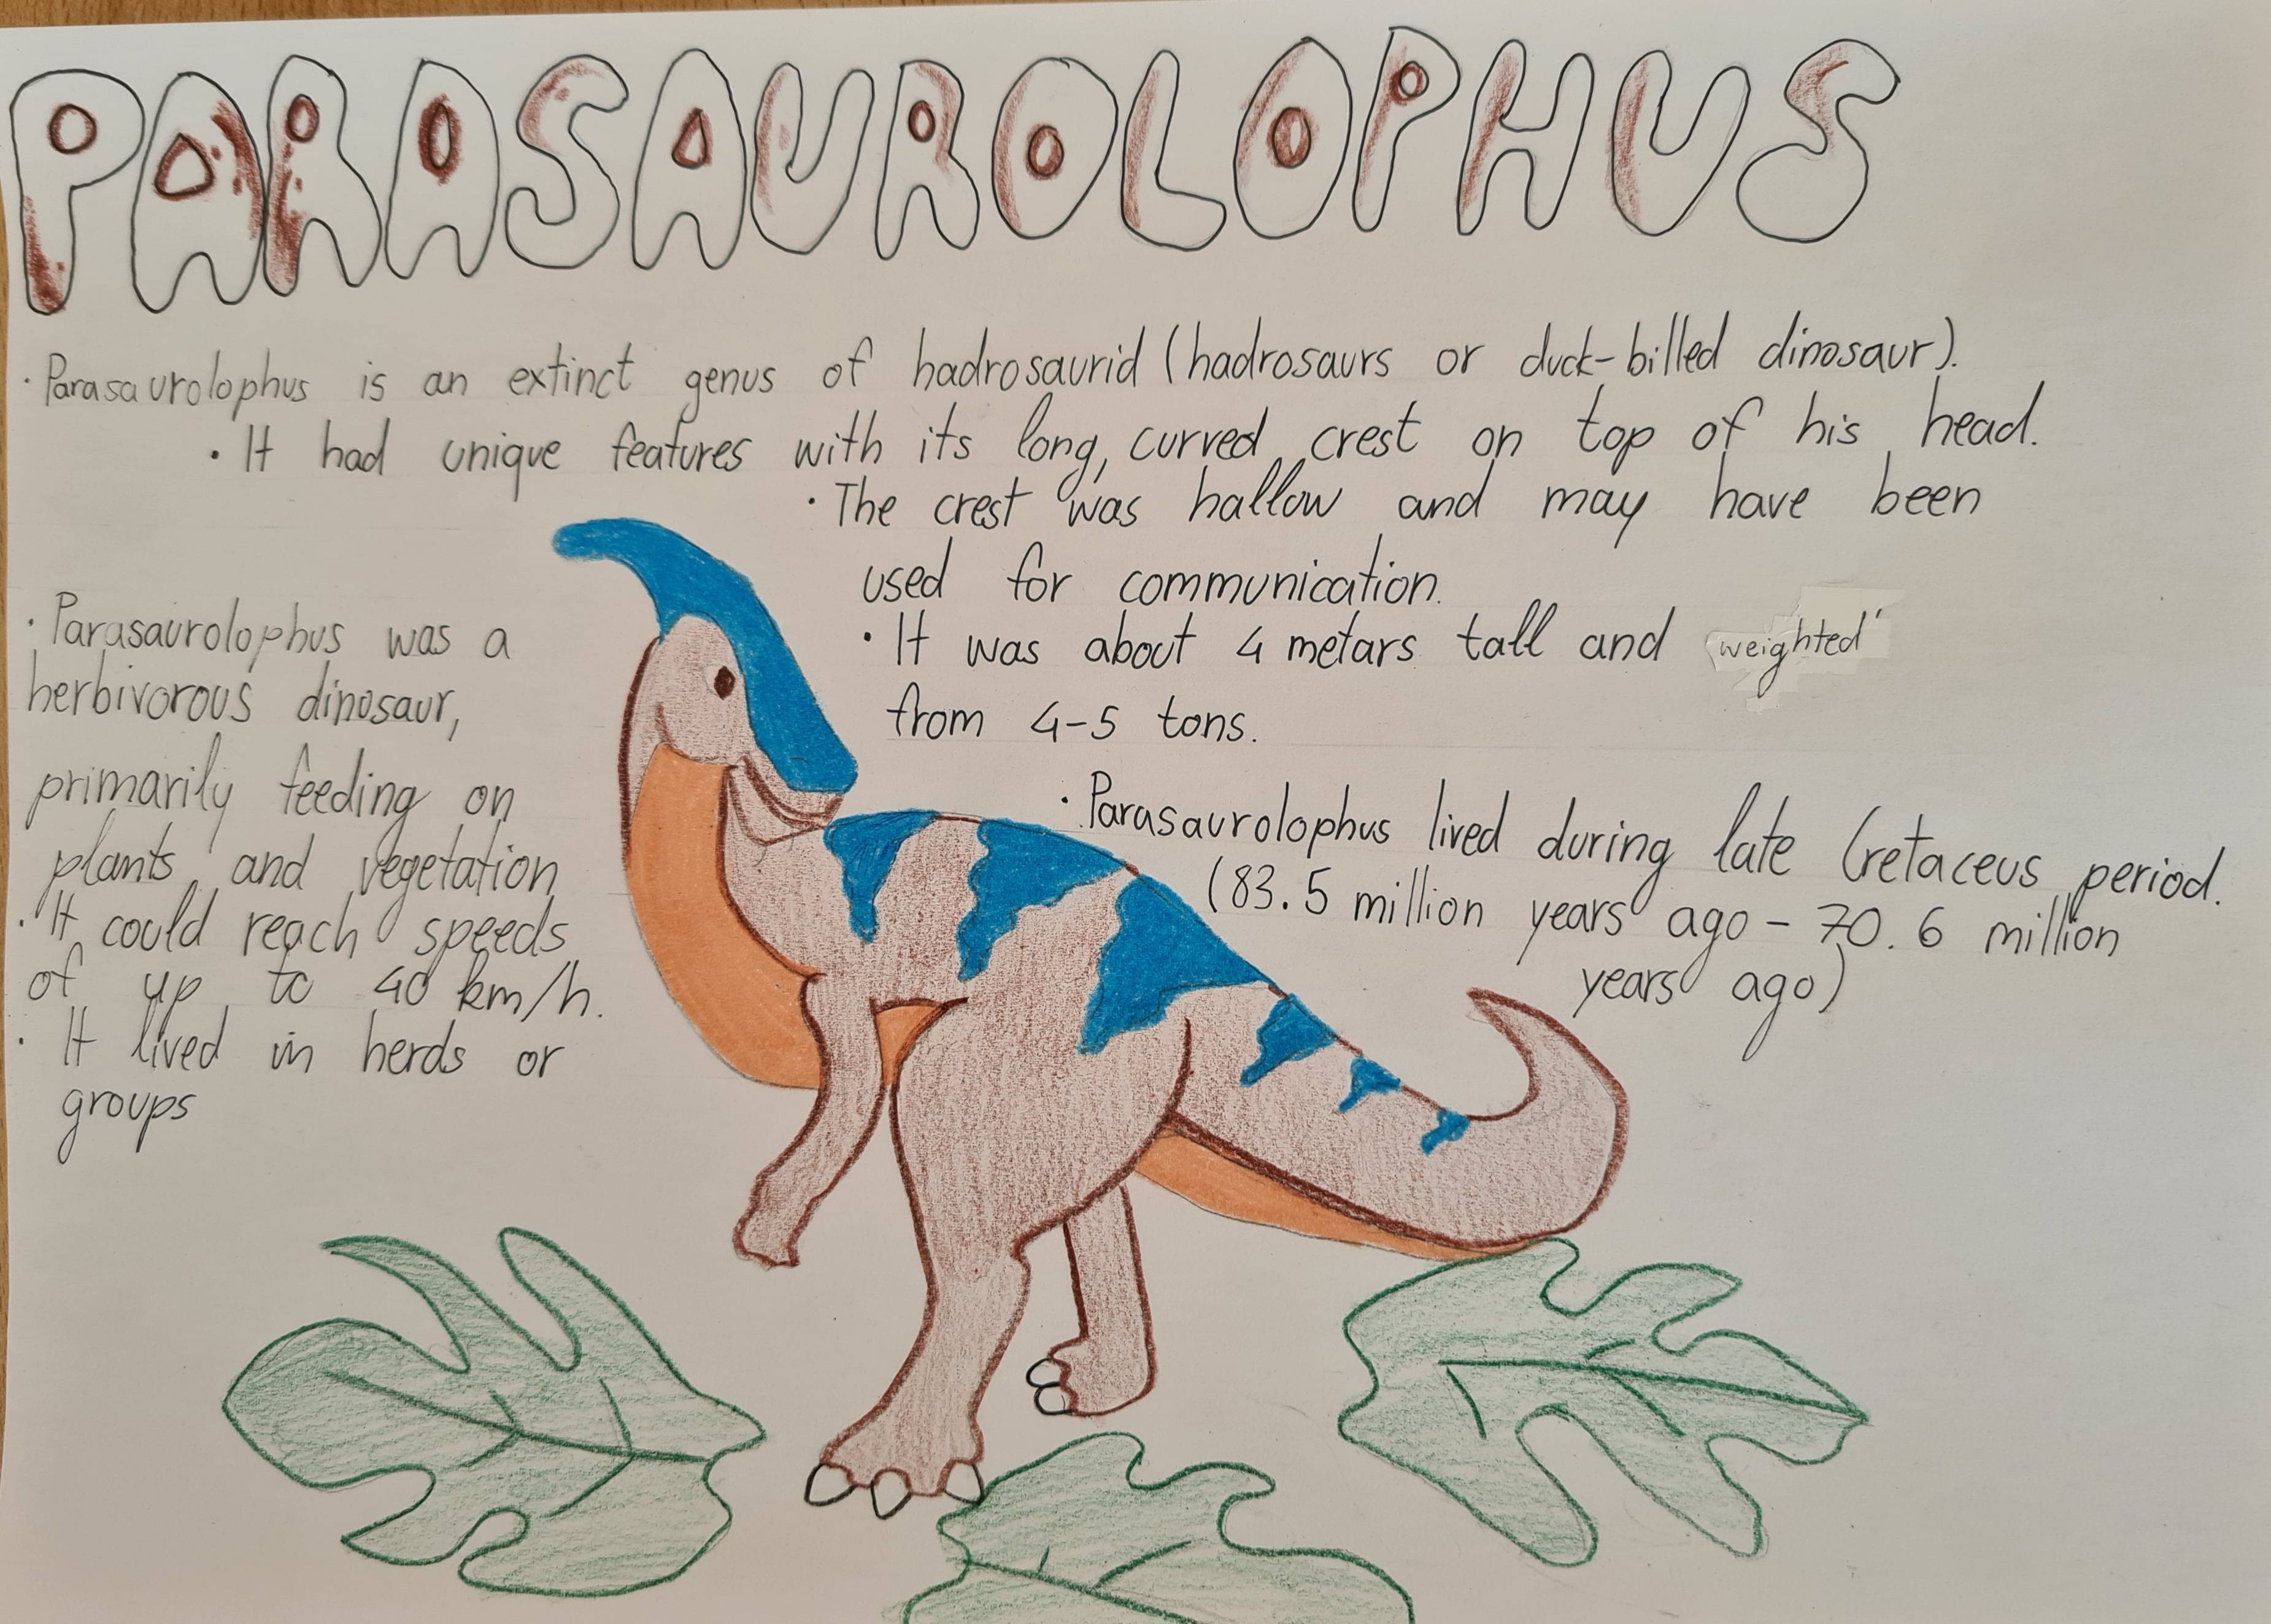 PARASAUROLOPHUS
· Parasaurolophus is an extinct genus of hadrosaurid (hadrosaurs or duck-billed dinosaur).
· It had unique features with its long, curved crest on top of his head.
· The crest was hallow and may have been
used for communication.
· It was about 4 metars tall and weighted
from 4-5 tons.
· Parasaurolophus lived during late Cretaceus period.
(83.5 million years ago - 70.6 million
years ago)
· Parasaurolophus was a
herbivorous dinosaur,
primarily feeding on
plants and vegetation
· It could reach speeds
of up to 40 km/h.
· It lived in herds or
groups